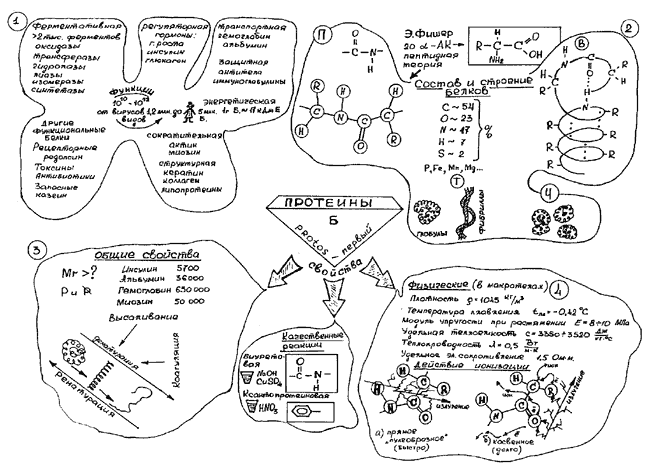 1
Ферментативная
>2 тыс. ферментов
оксидазы
трансферазы
гидролазы
лиазы
изомеразы
синтетазы
регуляторная
гормоны:
г. роста
инсулин
глюкагон
транспортная
гемоглобин
альбумин
защитная
антитела
иммуноглобулины
Функции
от вирусов 1,2 млн. до 5 млн.
видов
Б.
энергетическая
другие
функциональные
белки
Рецепторные
родопсин
Токсины
Антибиотики
Запасные
казеин
сократительная
актин
миозин
структурная
кератин
коллаген
липопротеины
П
Э. Фишер
20 α-АК
пептидная
теория
Состав и строение
белков
C ~ 54
O ~ 23
N ~ 17
H ~ 7
S ~ 2
%
P, Fe, Mn, Mg...
2
В
Т
Ч
глобулы
фибриллы
ПРОТЕИНЫ
Б
protos - первый
свойства
3
Общие свойства
Mr >?
Инсулин 5700
Альбумин 36000
Гемоглобин 650 000
Миозин 50 000
Высаливание
денатурация
Ренатурация
Коагуляция
Качественные
реакции
Биурето-
вая
NaOH
CuSO₄
Ксантопротеиновая
HNO₃
4
Физические (в макротелах)
Плотность ρ = 1025 кг/м³
Температура плавления tпл = -0,42°C
Модуль упругости при растяжении E = 8÷10 МПа
Удельная теплоемкость c = 3350÷3520 Дж/кг·°C
Теплопроводность λ = 0,5 Вт/м·К
Удельное эл. сопротивление 1,5 Ом·м.
Действие ионизации
излучение
излучение
а) прямое
"пулеобразное"
(быстро)
б) косвенное
(долго)